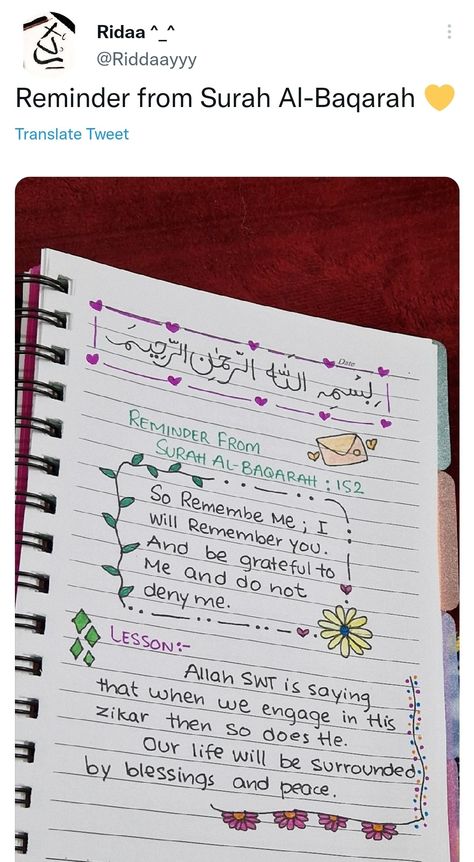 Ridaa ^_^
@Riddaayyy
Reminder from Surah Al-Baqarah 💛
Translate Tweet
Date
بِسْمِ اللّٰهِ الرَّحْمٰنِ الرَّحِيْمِ
REMINDER FROM
SURAH AL-BAQARAH : 152
So Remembe Me ; I
will Remember you.
And be grateful to
Me and do not
deny me.
LESSON:-
Allah SWT is saying
that when we engage in His
zikar then so does He.
Our life will be surrounded
by blessings and peace.